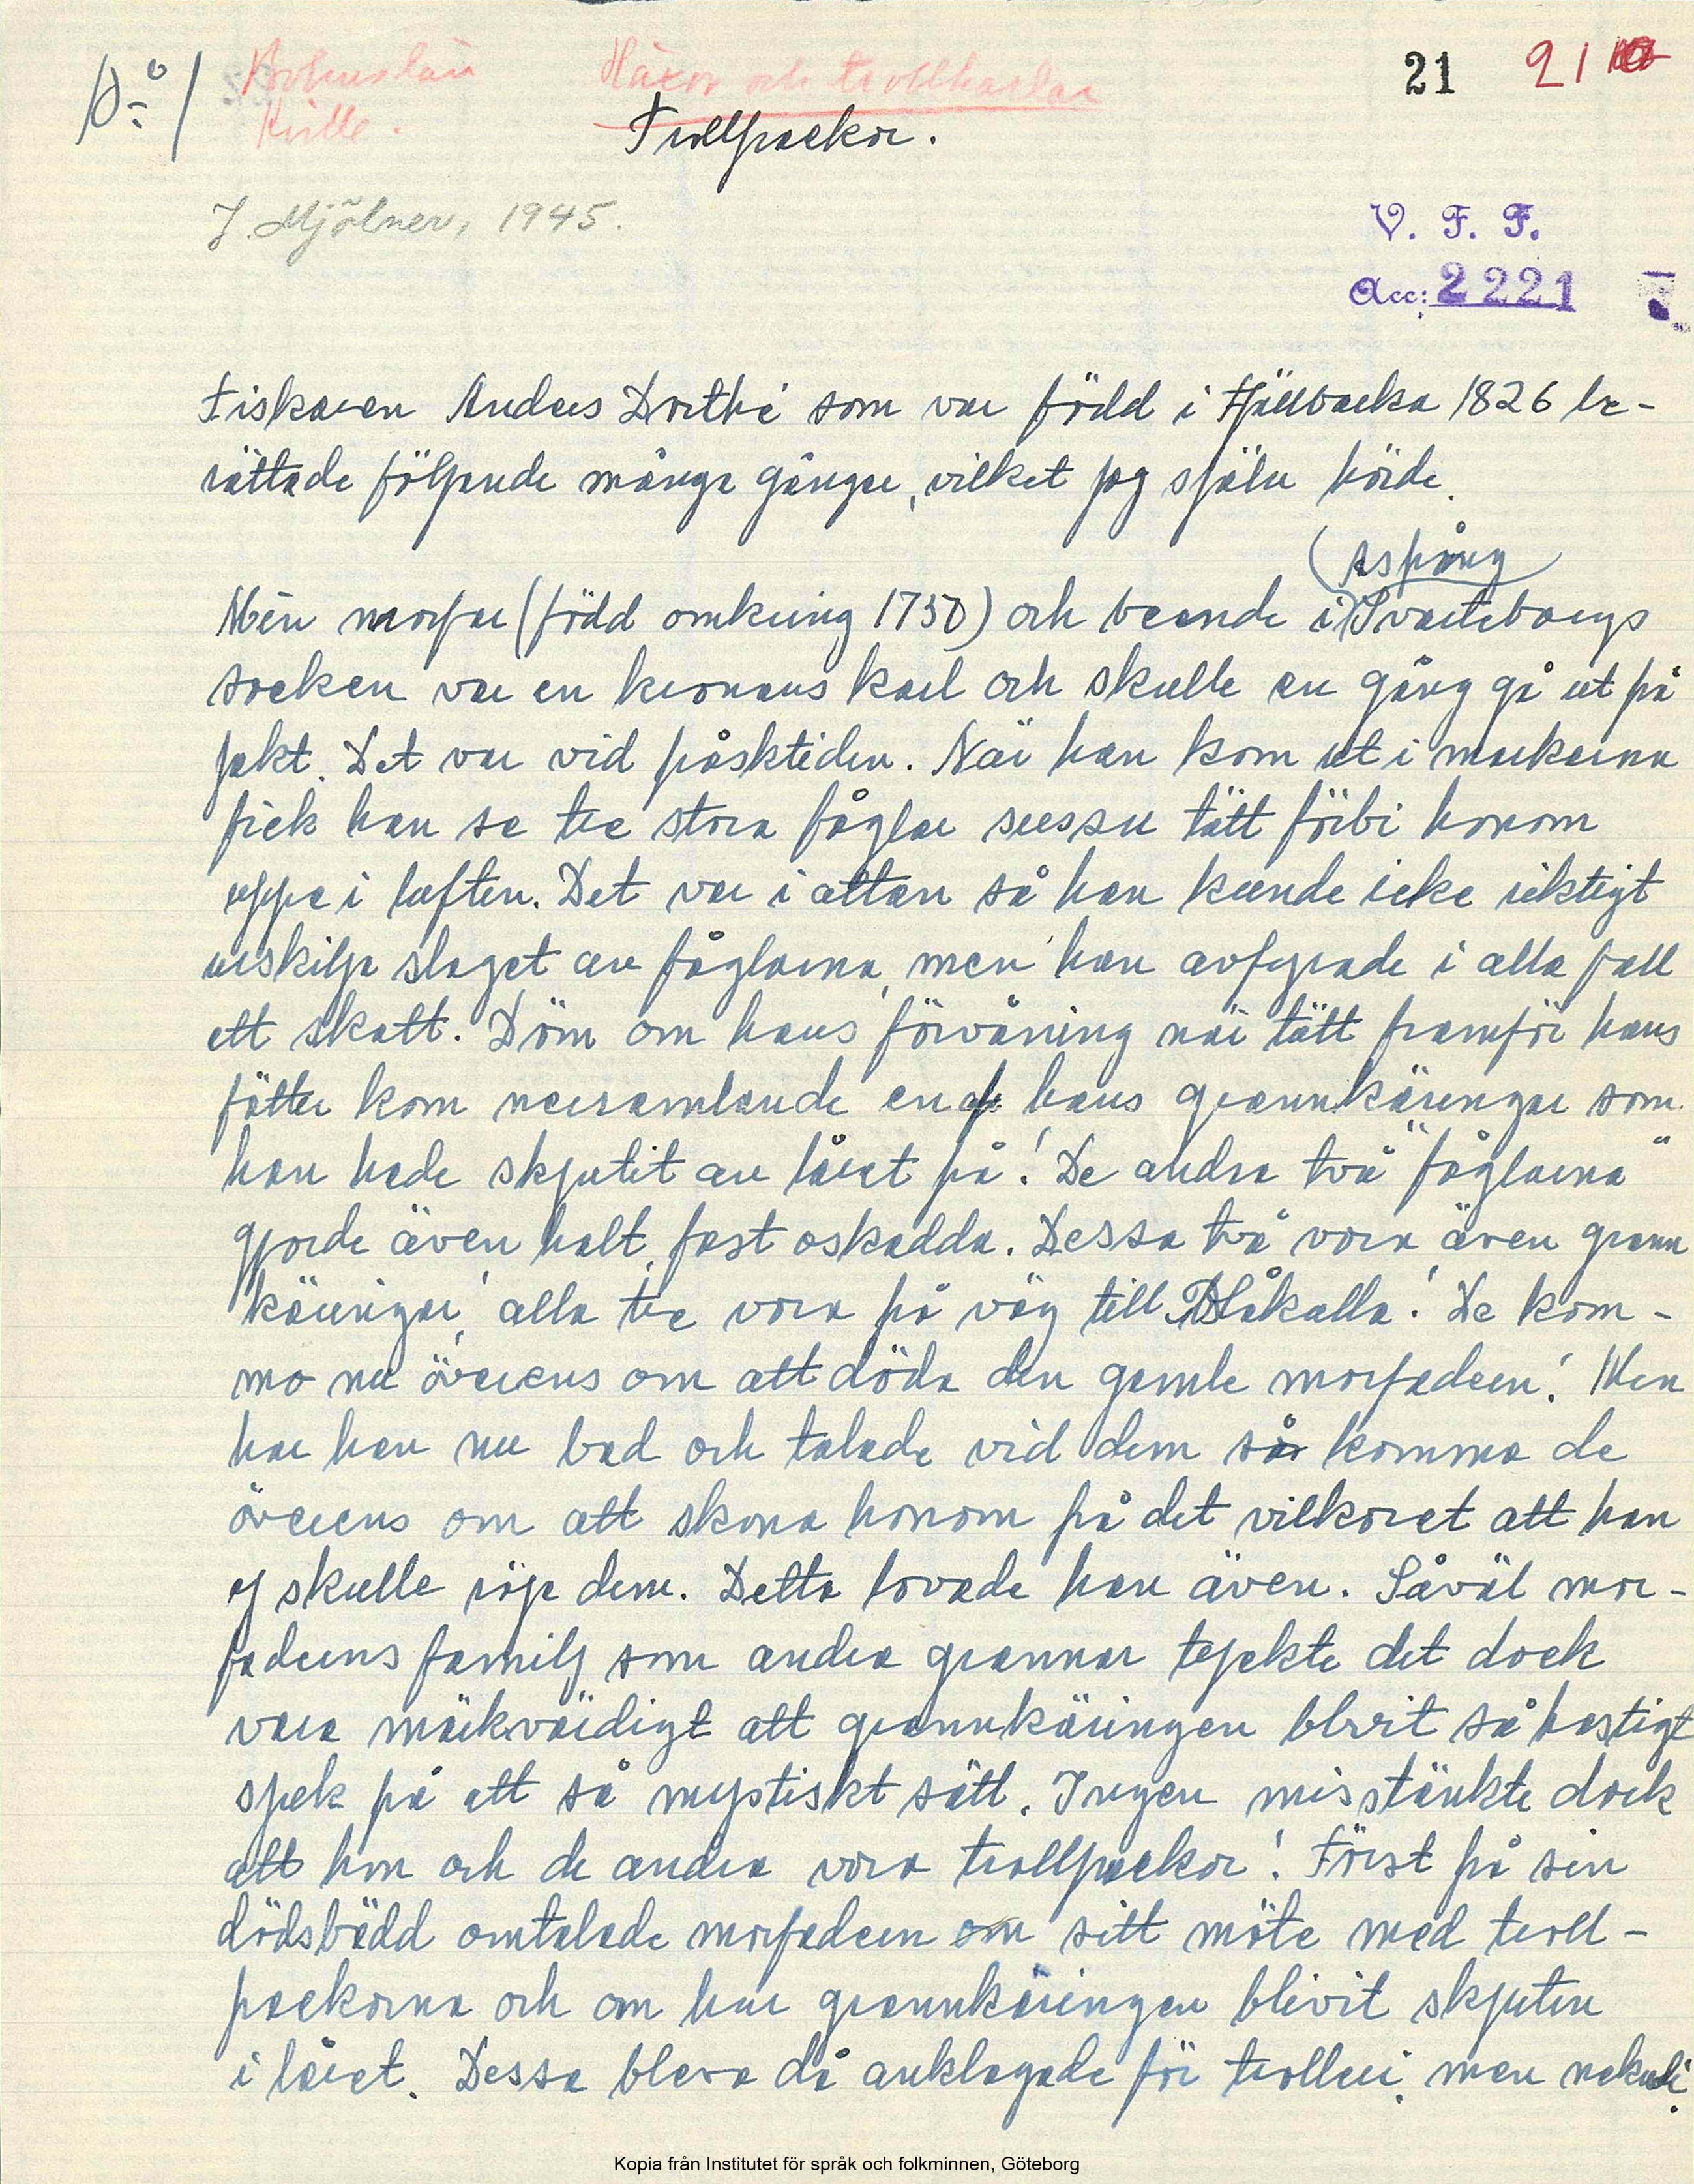 No 1
Bohuslän
Kville.
Häxor och trollkarlar
21
21
Trollpackor.
J. Mjölner, 1945.
V. F. F.
Acc: 2221
Fiskaren Anders Dorthé som var född i Fjällbacka 1826 be-
rättade följande många gånger, vilket jag själv hörde.
(Aspång
Min morfar (född omkring 1750) och boende i) Svarteborgs
socken var en kronans karl och skulle en gång gå ut på
jakt. Det var vid påsktiden. När han kom ut i markerna
fick han se tre stora fåglar sussu tätt förbi honom
uppe i luften. Det var i ottan så han kunde icke riktigt
urskilja slaget av fåglarna, men han avfyrade i alla fall
ett skott. Döm om hans förvåning när tätt framför hans
fötter kom nerramlande en af hans grannkäringar som
han hade skjutit av låret på! De andra två "fåglarna"
gjorde även halt, fast oskadda. Dessa två voro även grann
käringar, alla tre voro på väg till Blåkulla! De kom-
mo nu överens om att döda den gamle morfadern! Men
hur han nu bad och talade vid dem så komma de
överens om att skona honom på det vilkoret att han
ej skulle röja dem. Detta lovade han även. Såväl mor-
faderns familj som andra grannar tyckte det dock
vara märkvärdigt att grannkäringen blivit så hastigt
sjuk på ett så mystiskt sätt. Ingen misstänkte dock
att hon och de andra voro trollpackor! Först på sin
dödsbädd omtalade morfadern om sitt möte med troll-
packorna och om hur grannkäringen blivit skjuten
i låret. Dessa blevo då anklagade för trolleri, men
Kopia från Institutet för språk och folkminnen, Göteborg